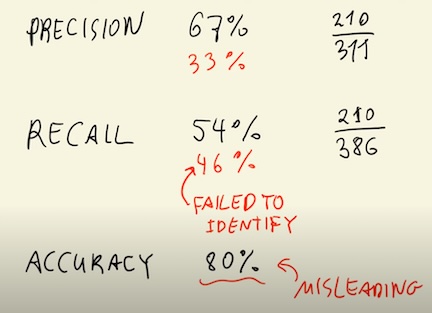 PRECISION 67% 210/311
33%
RECALL 54% 210/386
46%
FAILED TO
IDENTIFY
ACCURACY 80%
MISLEADING